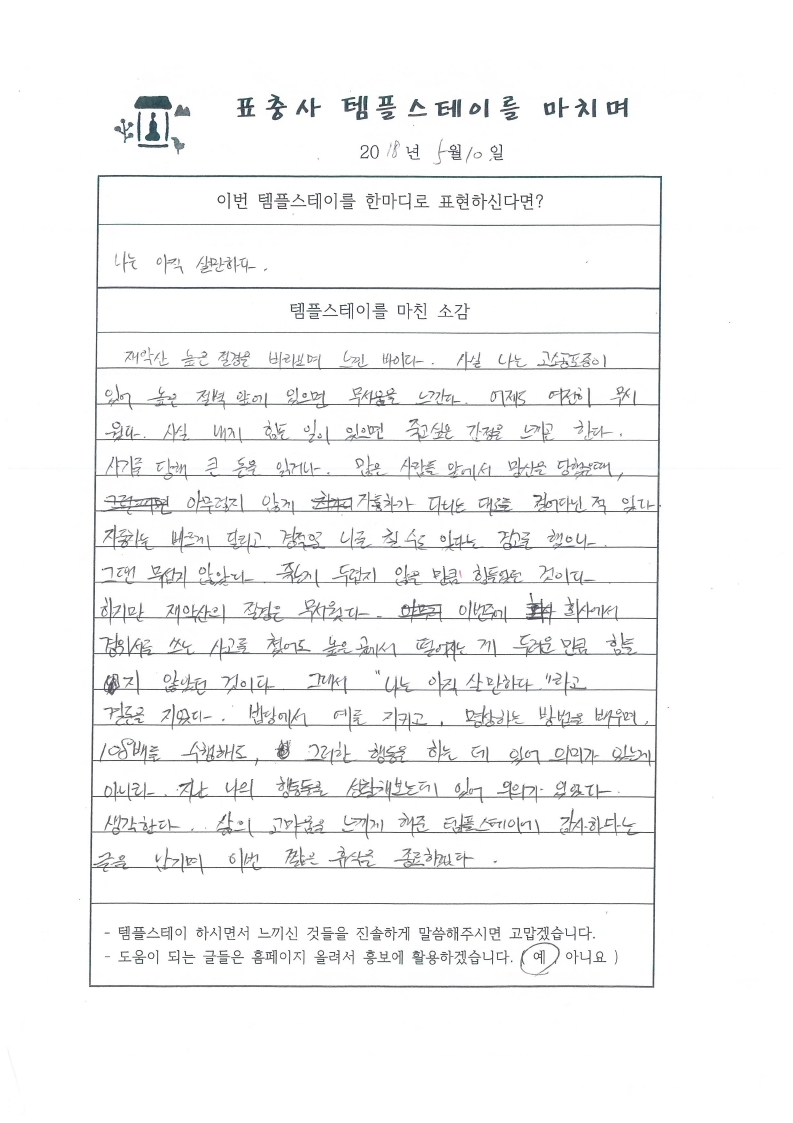 표충사 템플스테이를 마치며
2018년 5월 10일
이번 템플스테이를 한마디로 표현하신다면?
나는 아직 살만하다.
템플스테이를 마친 소감
재약산 높은 절경을 바라보며 느낀 바이다. 사실 나는 고소공포증이
있어 높은 절벽 앞에 있으면 무서움을 느낀다. 어제도 여전히 무서
웠다. 사실 내게 힘든 일이 있으면 죽고싶은 감정을 느끼곤 한다.
사기를 당해 큰 돈을 잃거나. 많은 사람들 앞에서 망신을 당했을때,
아무렇지 않게 자동차가 다니는 대로를 걸어다닌 적 있다.
자동차는 빠르게 달리고, 경적으로 나를 칠 수도 있다는 경고를 했으나
그땐 무섭지 않았다. 죽는게 두렵지 않은 만큼 힘들었던 것이다
하지만 재약산의 절경은 무서웠다. 이번주에 회사에서
경위서를 쓰는 사고를 쳤어도 높은 곳에서 떨어지는 게 두려운 만큼 힘들
지 않았던 것이다 그래서 "나는 아직 살만하다."라고
결론을 지었다. 법당에서 예를 지키고, 명상하는 방법을 배우며,
108배를 수행해도, 그러한 행동을 하는 데 있어 의미가 있는게
아니라. 지난 나의 행동들을 성찰해보는데 있어 의의가 있었다.
생각한다. 삶의 고마움을 느끼게 해준 템플스테이에 감사하다는
글을 남기며 이번 짧은 휴식을 종료하였다.
- 템플스테이 하시면서 느끼신 것들을 진솔하게 말씀해주시면 고맙겠습니다.
- 도움이 되는 글들은 홈페이지 올려서 홍보에 활용하겠습니다. ( 예 , 아니요 )